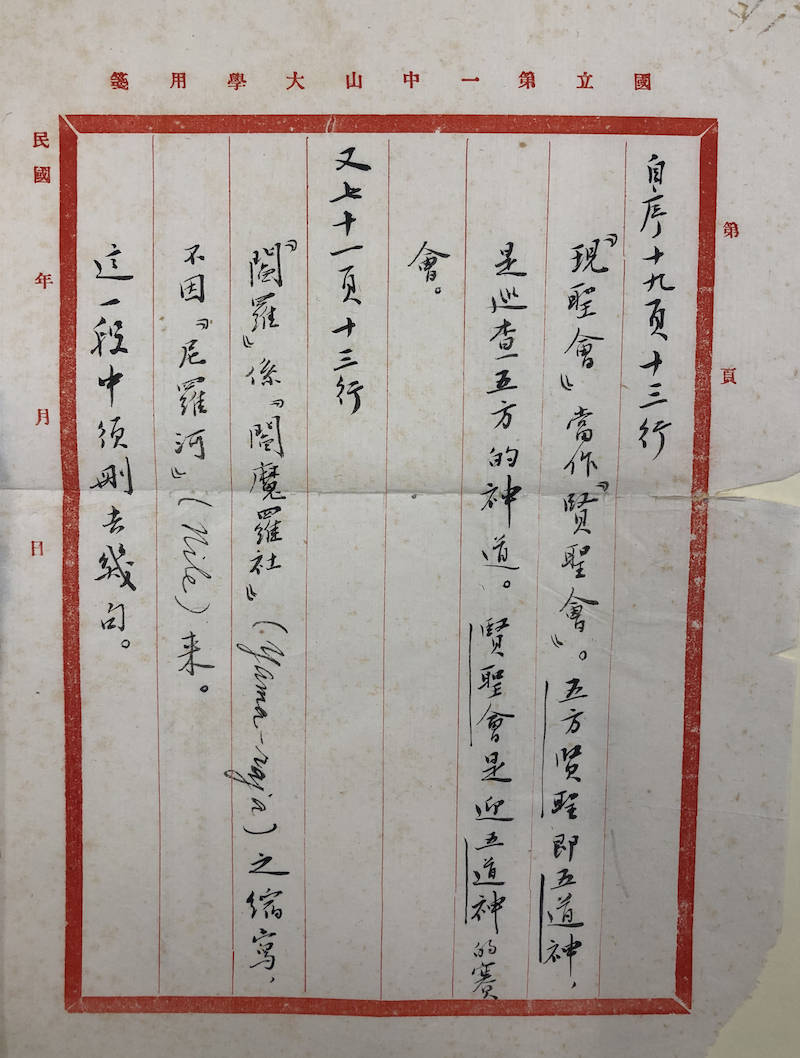 國立第一中山大學用箋
第 頁
自序十九頁十三行
『現聖會』當作『賢聖會』。五方賢聖即五道神，
是巡查五方的神道。賢聖會是迎五道神的賽
會。
又七十一頁十三行
『閻羅』係『閻魔羅社』(Yama-raja)之縮寫，
不因『尼羅河』(Nile)来。
這一段中須刪去幾句。
民國 年 月 日